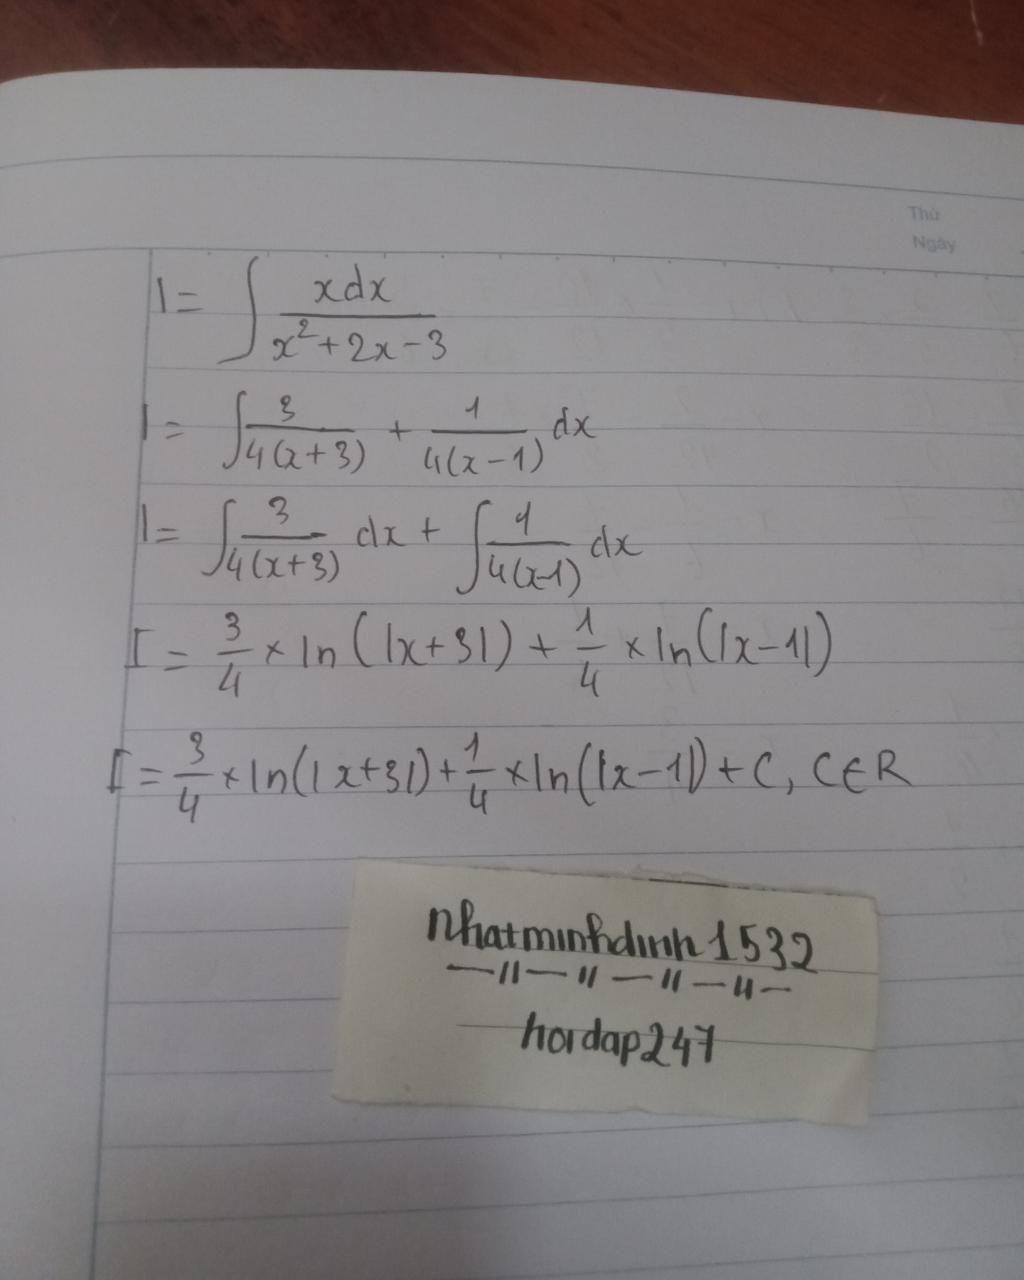 Thứ
Ngày
I = ∫ xdx / (x²+2x-3)
I = ∫ 3/(4(x+3)) + 1/(4(x-1)) dx
I = ∫ 3/(4(x+3)) dx + ∫ 1/(4(x-1)) dx
I = 3/4 × ln(|x+3|) + 1/4 × ln(|x-1|)
I = 3/4 × ln(|x+3|) + 1/4 × ln(|x-1|) + C, C∈R
nhatminhdinh1532
hoidap247